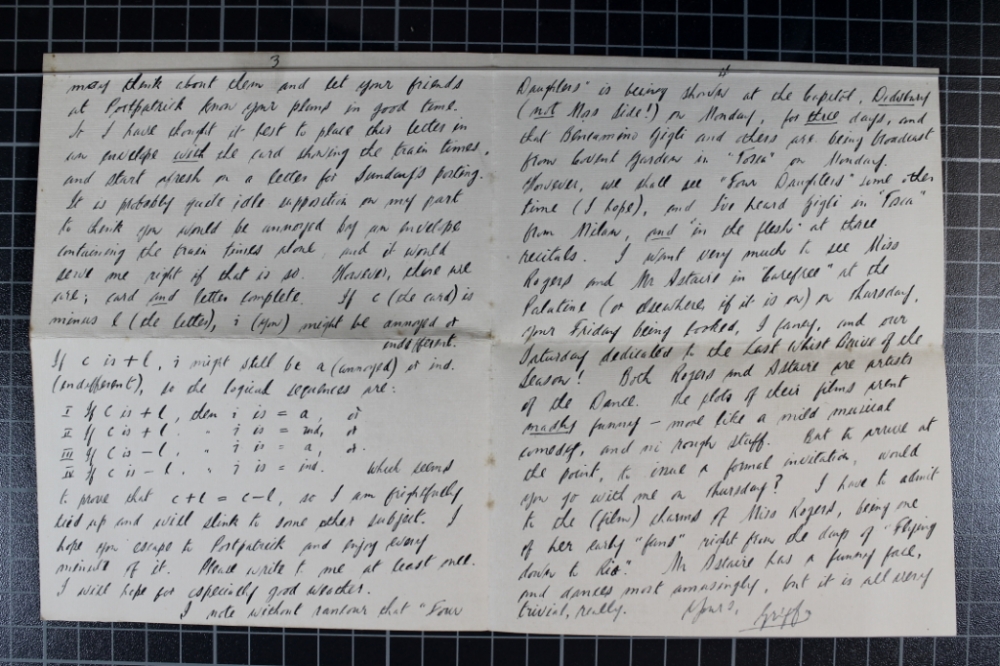 3
may think about them and let your friends
at Portpatrick know your plans in good time.
I have thought it best to place this letter in
an envelope with the card showing the train times
and start afresh on a letter for Sunday's posting.
It is probably quite idle supposition on my part
to think you would be annoyed by an envelope
containing the train times alone, and it would
serve me right if that is so. However, there are
are; card and letter complete. If c (the card) is
minus l (the letter), i (you) might be annoyed or
indifferent.
If c is + l, i might still be a (annoyed) or ind.
(indifferent), so the logical sequences are:
I If c is + l, then i is = a, or
II If c is + l. " i is = ind, or
III If c is - l. " i is = a, or.
IV If c is - l. " i is = ind. Which seems
to prove that c+l = c-l, so I am frightfully
tied up and will slink to some other subject. I
hope you escape to Portpatrick and enjoy every
minute of it. Please write to me at least once.
I will hope for especially good weather.
I note without rancour that "Four
4
Daughters" is being shown at the Capitol, Didsbury
(not Moss Side!) on Monday, for three days, and
that Beniamino Gigli and others are being broadcast
from Covent Garden in "Tosca" on Monday.
However, we shall see "Four Daughters" some other
time (I hope), and I've heard Gigli in "Tosca"
from Milan, and "in the flesh" at three
recitals. I want very much to see Miss
Rogers and Mr Astaire in "Carefree" at the
Palatine (or elsewhere if it is on) on Thursday,
your Friday being booked, I fancy, and our
Saturday dedicated to the Last Whist Drive of the
Season! Both Rogers and Astaire are artists
of the Dance. The plots of their films arent
madly funny - more like a mild musical
comedy, and no rough stuff. But to arrive at
the point, to issue a formal invitation, would
you go with me on Thursday? I have to admit
to the (film) charms of Miss Rogers, being one
of her early "fans" right from the days of "Flying
down to Rio". Mr Astaire has a funny face,
and dances most amusingly, but it is all very
trivial, really. Yours, Griff